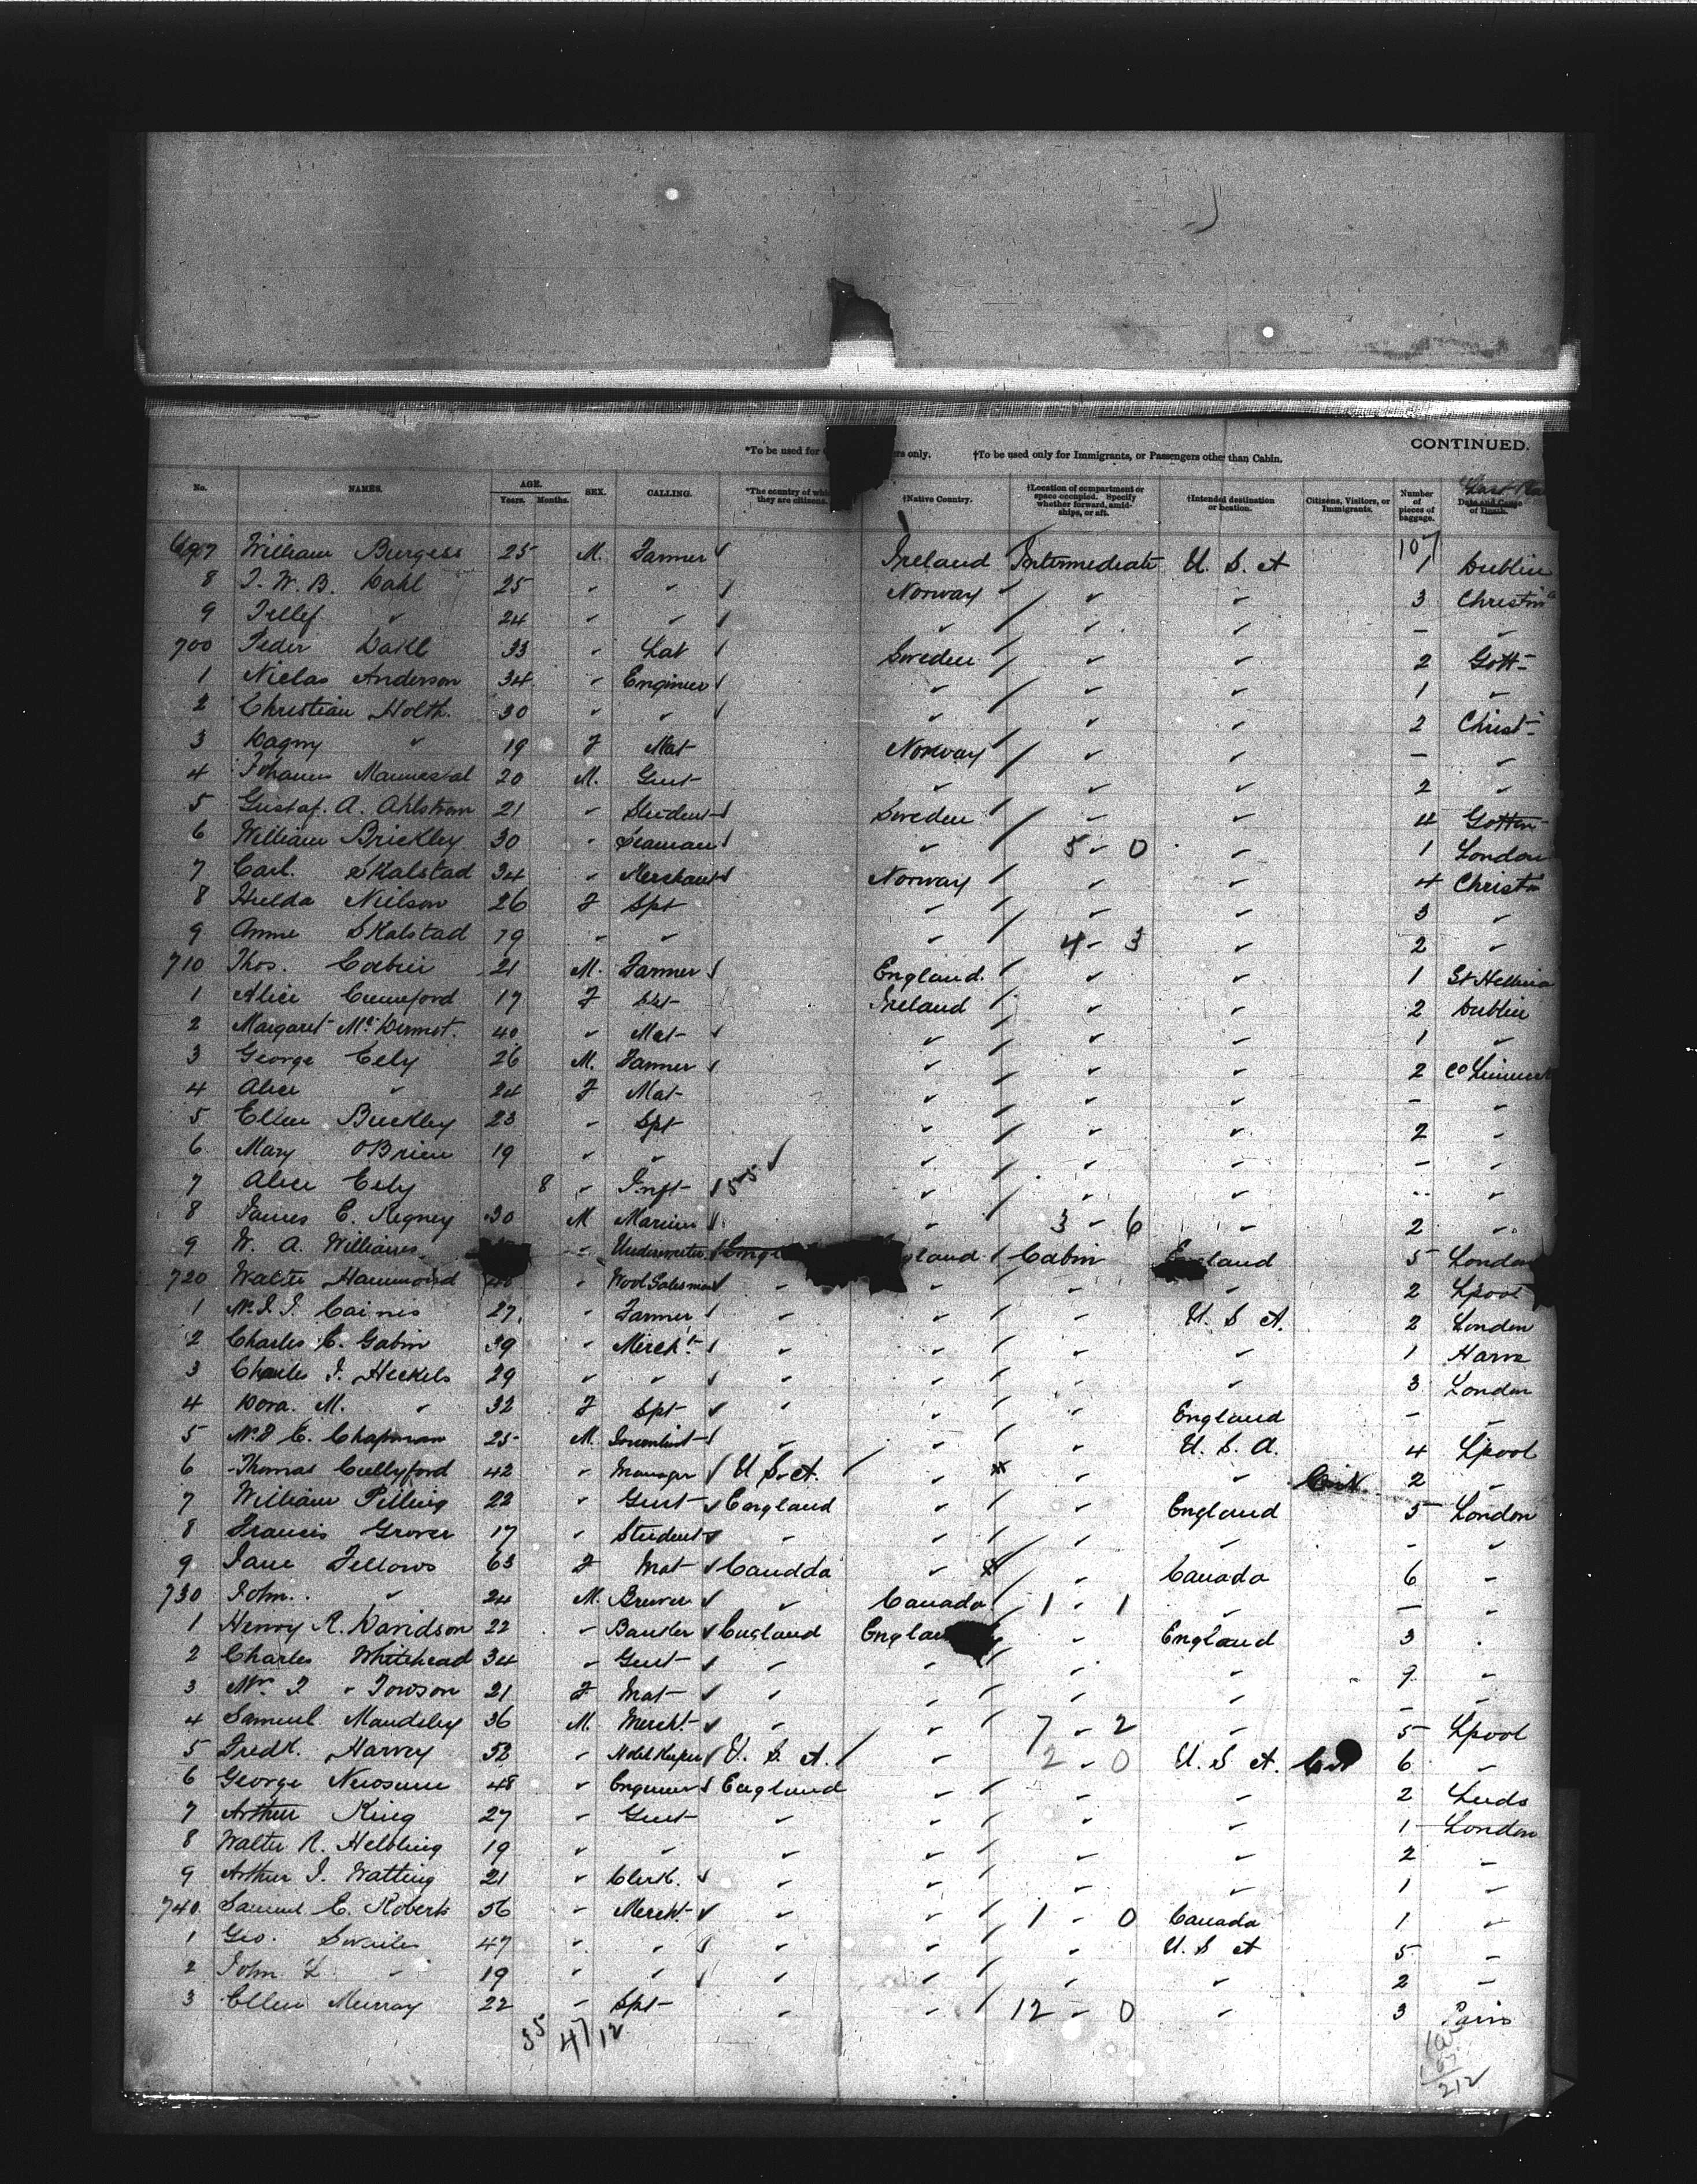 CONTINUED.
*To be used for rs only. †To be used only for Immigrants, or Passengers other than Cabin.
No. NAMES. AGE. Years. Months. SEX. CALLING. *The country of whi they are citizens. †Native Country. †Location of compartment or space occupied. Specify whether forward, amidships, or aft. †Intended destination or location. Citizens, Visitors, or Immigrants. Number of pieces of baggage. Date and Cause of Death.
107
697 William Burgess 25 M. Farmer Ireland Intermediate U.S.A 1 Dublin
8 T. W. B. Dahl 25 " " Norway " " 3 Christin
9 Tellef " 24 " " " " " - "
700 Peder Dahl 33 " Lab Sweden " " 2 Gott-
1 Niclas Anderson 34 " Engineer " " " 1 "
2 Christian Holth. 30 " " " " " 2 Christ-
3 Dagny " 19 F Mat Norway " " - "
4 Johann 20 M. Gent " " " 2 "
5 Gustaf. A. Ahlstrom 21 " Student Sweden " " 4 Gotten-
6 William Brickley 30 " Seaman " 5 - 0 " 1 London
7 Carl. Skalstad 34 " Merchant Norway " " 4 Christn
8 Hulda Nielson 26 F Spt " " " 3 "
9 Anne Skalstad 79 " " " 4 - 3 " 2 "
710 Thos. 21 M. Farmer England. " " 1 St Hellena
1 Alice 17 F Spt Ireland " " 2 Dublin
2 Margaret McDermot. 40 " Mat " " " 1 "
3 George Cely 26 M. Farmer " " " 2 Co Limerick
4 Alice " 24 F Mat " " " - "
5 Ellen Buckley 23 " Spt " " " 2 "
6 Mary OBrien 19 " " " " " - "
7 Alice Cely 8 " Inft " " " - "
8 James C. Regney 30 M Mariner " 3 - 6 " 2 "
9 W. A. Williams " Underwriter gland Cabin England 5 London
720 Walter Hammond " Wool Salesman " " " " 2 Lpool
1 Mr J. J. Cairnis 27 " Farmer " " " U.S.A. 2 London
2 Charles C. Gabin 39 " Mercht " " " " 1 Havre
3 Charles J. Heckels 29 " " " " " " 3 London
4 Dora. M. " 32 F Spt " " " England - "
5 E. Chapman 25 M. Journalist " " " U.S.A. 4 Lpool
6 Thomas Cullyford 42 " Manager U.S.A. " " " Cit 2 "
7 William Pilling 22 " Gent England " " England 5 London
8 Francis Grover 17 " Student " " " " - "
9 Jane Fellows 63 F Mat Canada " " Canada 6 "
730 John. " 24 M. Brewer " Canada 1 - 1 " - "
1 Henry R. Davidson 22 " Banker England Englan " England 3 "
2 Charles Whitehead 34 " Gent " " " " 7 "
3 Mrs J " Towson 21 F Mat " " " " - "
4 Samuel Maudsley 36 M. Mercht " " 7 - 2 " 5 Lpool
5 Fredk. Harvey 52 " Hotel Keeper U.S.A. " 2 - 0 U.S.A. Cit 6 "
6 George Newsume 48 " Engineer England " " " 2 Leeds
7 Arthur King 27 " Gent " " " " 1 London
8 Walter R. Helbling 19 " " " " " " 2 "
9 Arthur J. Watling 21 " Clerk. " " " " 1 "
740 Samuel E. Roberts 56 " Mercht. " " 1 - 0 Canada 1 "
1 Geo. Swailes 47 " " " " " U.S.A 5 "
2 John L " 19 " " " " " " 2 "
3 Ellen Murray 22 " Spt " " 12 - 0 " 3 Paris
35 47/12
212